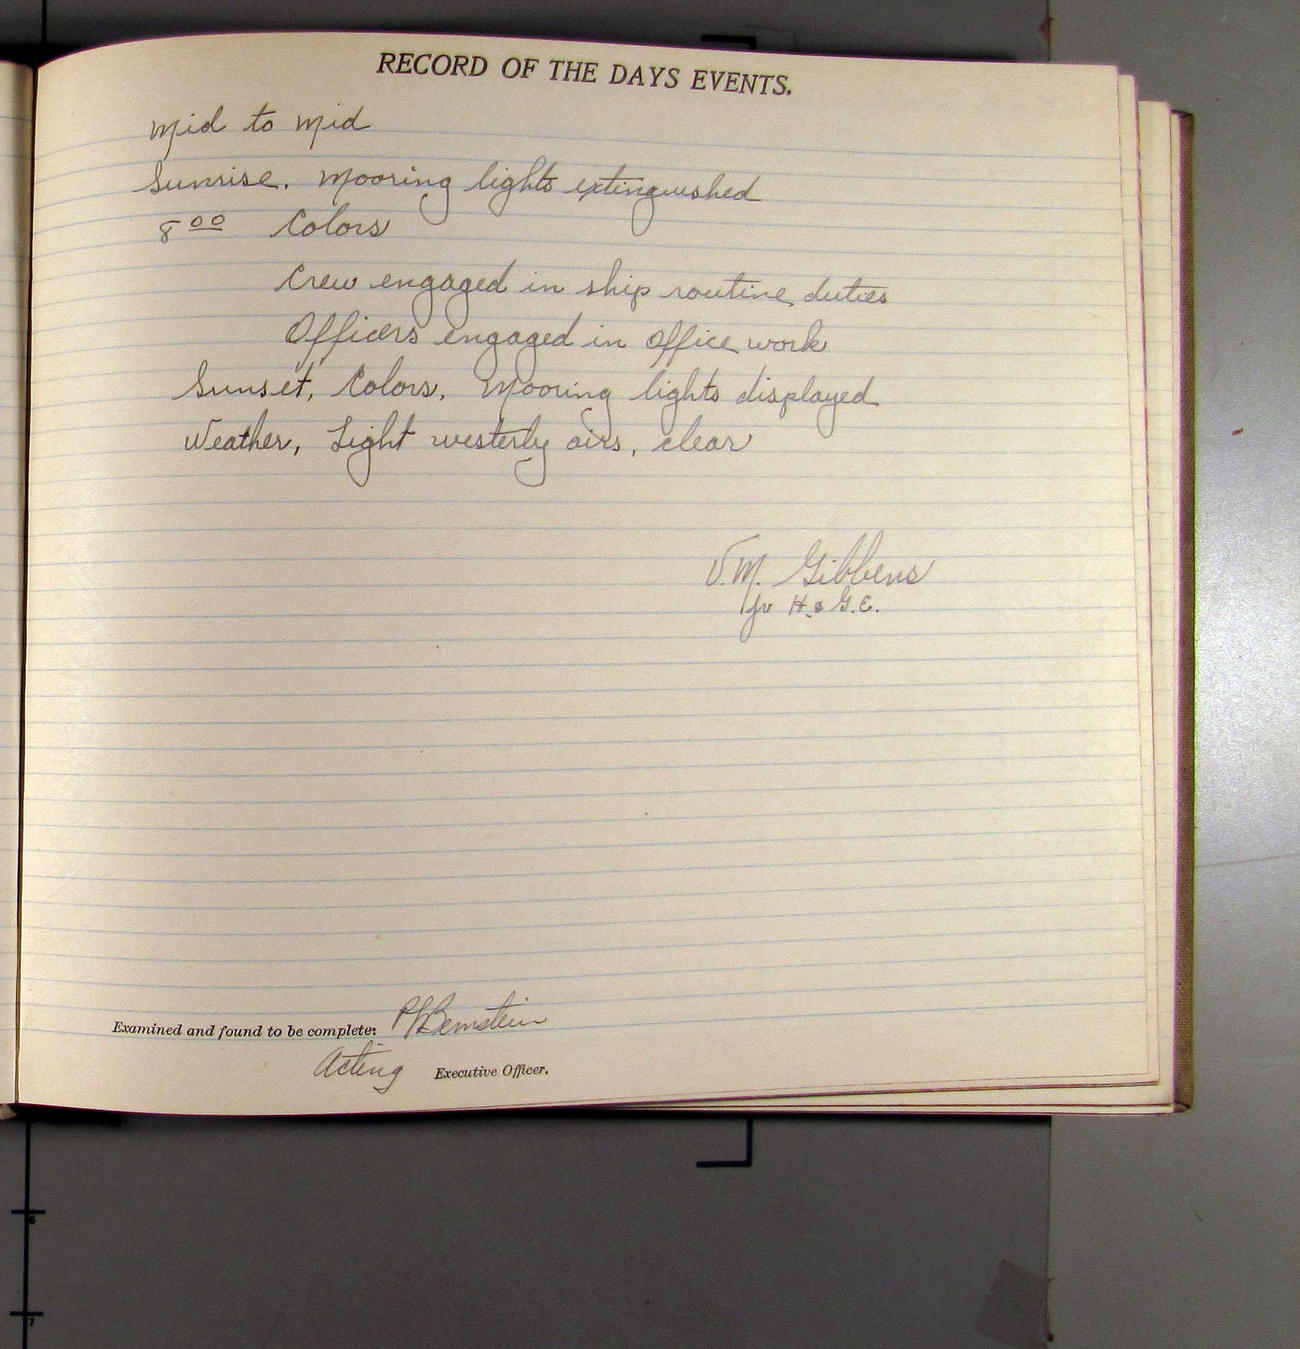 RECORD OF THE DAYS EVENTS.
Mid to Mid
Sunrise. Mooring lights extinguished
8 00 Colors
Crew engaged in ship routine duties
Officers engaged in office work
Sunset, Colors, Mooring lights displayed
Weather, Light westerly airs, clear
V.M. Gibbens
jr H. & G.E.
Examined and found to be complete: Bernstein
Acting Executive Officer.
6
7